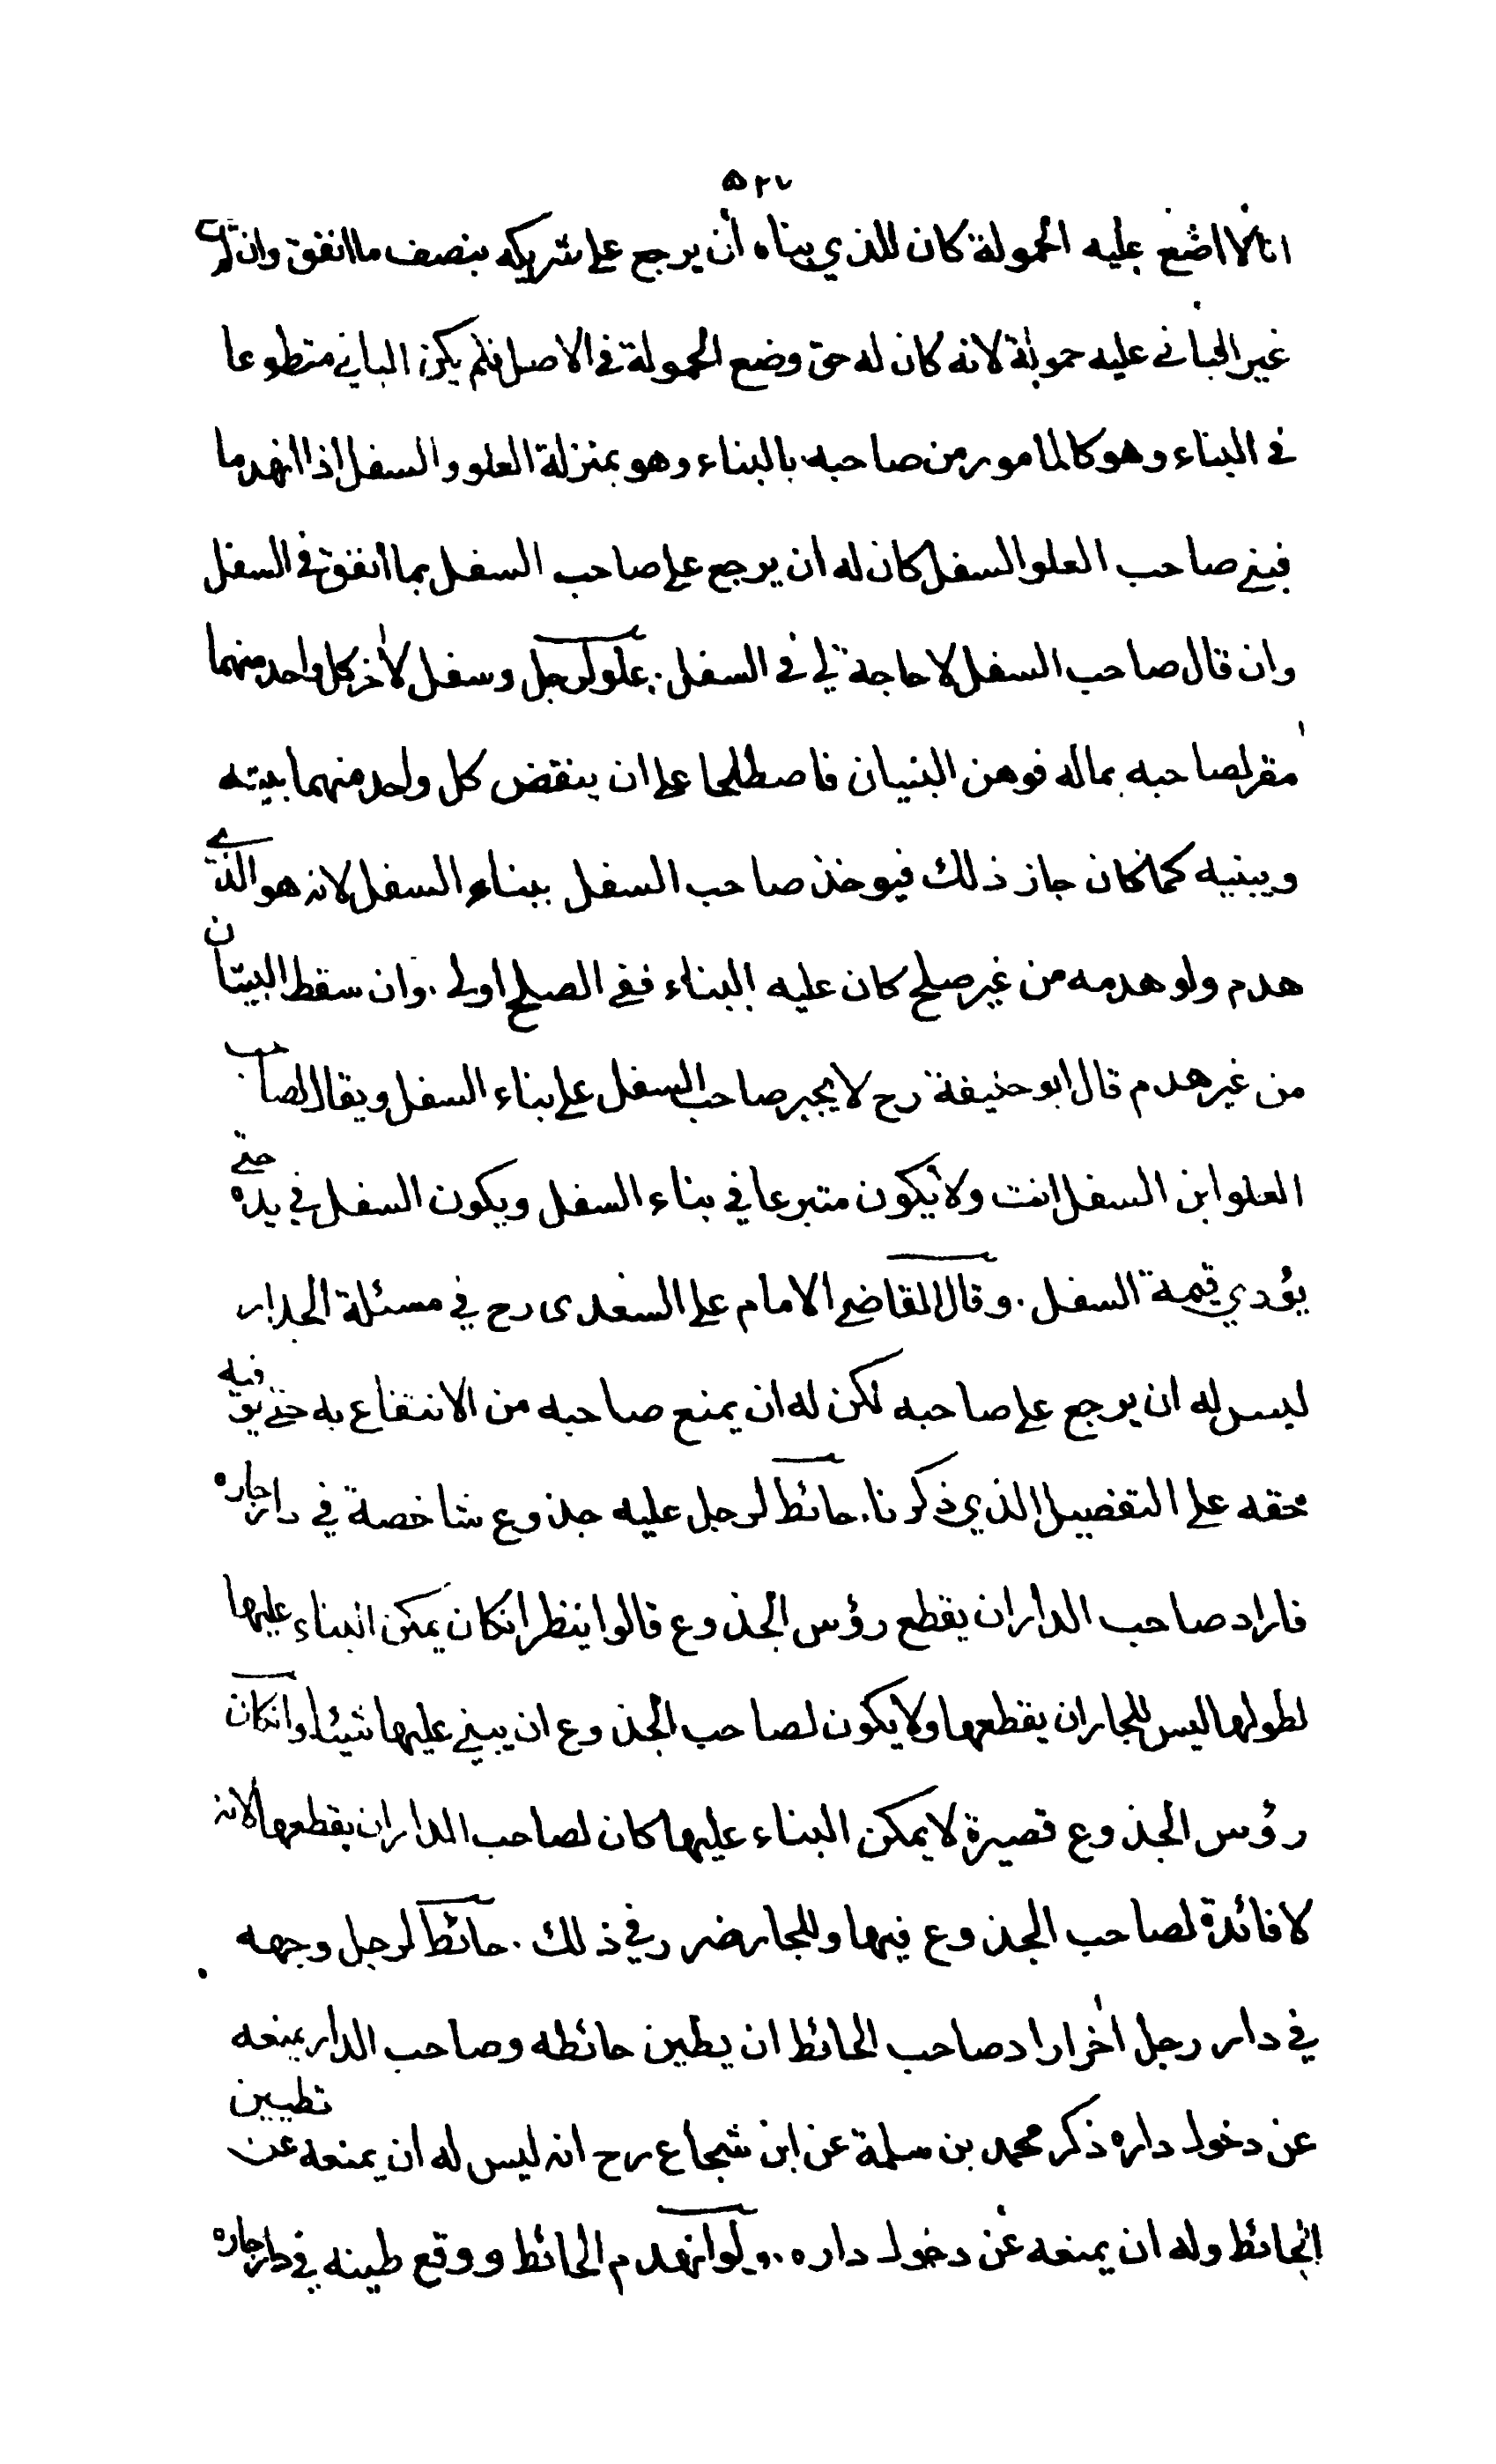 ٥٢٧
انا لا اضع عليه الحمولة كان للذي بناه أن يرجع على شريكه بنصف ما انفق وان لم
غير الباني عليه حمولة لانه كان له حق وضع الحمولة في الاصل فلم يكن الباني متطوعا
في البناء وهو كالمامور من صاحبه بالبناء وهو بمنزلة العلو والسفل اذا انهدما
فبنى صاحب العلو السفل كان له ان يرجع على صاحب السفل بما انفق في السفل
وان قال صاحب السفل لا حاجة لي في السفل . علو لرجل وسفل لأخر كل واحد منهما
مقر لصاحبه بماله فوهن البنيان فاصطلحا على ان ينقض كل واحد منهما بيته
ويبنيه كما كان جاز ذلك فيوخذ صاحب السفل ببناء السفل لانه هو الذي
هدم ولو هدمه من غير صلح كان عليه البناء ففي الصلح اولى . وان سقط البيتان
من غير هدم قال ابو حنيفة رح لا يجبر صاحب السفل على بناء السفل ويقال لصاحب
العلو ابن السفل انت ولا يكون متبرعا في بناء السفل ويكون السفل في يده حتى
يؤدي قيمة السفل . وقال القاضي الامام على السغدى رح في مسئلة الجدار
ليس له ان يرجع على صاحبه لكن له ان يمنع صاحبه من الانتفاع به حتى يوفيه
حقه على التفصيل الذي ذكرنا . حائط لرجل عليه جذوع شاخصة في دار جاره
فاراد صاحب الدار ان يقطع رؤس الجذوع قالوا ينظر انكان يمكن البناء عليها
لطولها ليس للجار ان يقطعها ولا يكون لصاحب الجذوع ان يبني عليها شيئا وانكان
رؤس الجذوع قصيرة لا يمكن البناء عليها كان لصاحب الدار ان يقطعها لانه
لا فائدة لصاحب الجذوع فيها وللجار ضرر في ذلك . حائط لرجل وجهه
في دار رجل أخر اراد صاحب الحائط ان يطين حائطه وصاحب الدار يمنعه
عن دخول داره ذكر محمد بن سلمة عن ابن شجاع رح انه ليس له ان يمنعه عن تطيين
الحائط وله ان يمنعه عن دخول داره . ولو انهدم الحائط ووقع طينه في دار جاره